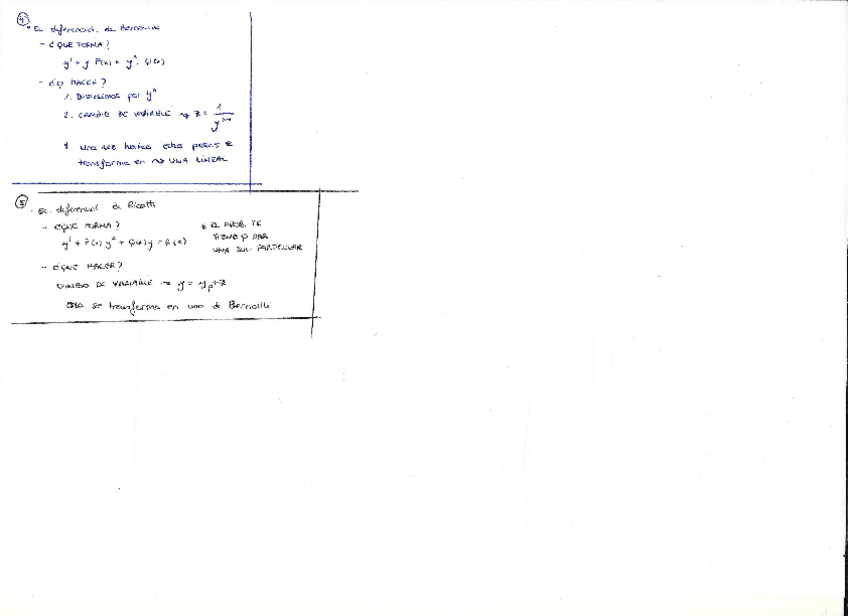 ④
• Ec diferencial de Bernoulli
- ¿QUE FORMA?
y' + y P(x) = yⁿ · Q(x)
- ¿Q HACER?
1. Dividimos por yⁿ
2. CAMBIO DE VARIABLE → z = 1/yⁿ⁻¹
Una vez hechos estos pasos se
transforma en → UNA LINEAL
⑤
· Ec. diferencial de Ricatti
- ¿QUE FORMA?
y' + P(x) y² + Q(x) y = R(x)
* EL PROB. TE
TIENE Q DAR
UNA SOL. PARTICULAR
- ¿QUE HACER?
CAMBIO DE VARIABLE → y = yₚ + z
Esta se transforma en una de Bernoulli